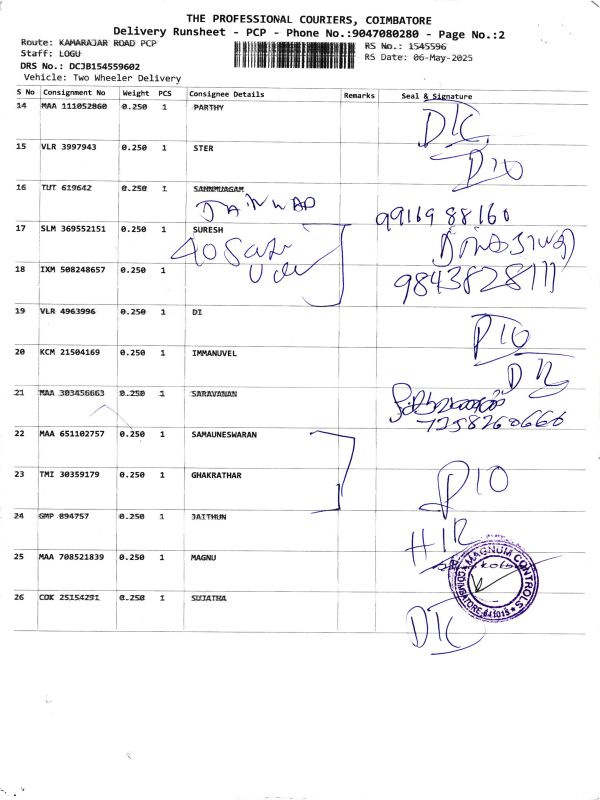 THE PROFESSIONAL COURIERS, COIMBATORE
Delivery Runsheet - PCP - Phone No.:9047080280 - Page No.:2
Route: KAMARAJAR ROAD PCP
RS No.: 1545596
Staff: LOGU
RS Date: 06-May-2025
DRS No.: DCJB154559602
Vehicle: Two Wheeler Delivery
S No Consignment No Weight PCS Consignee Details Remarks Seal & Signature
14 MAA 111052860 0.250 1 PARTHY
15 VLR 3997943 0.250 1 STER
16 TUT 619642 0.250 1 SANNMUAGAM
99169 88160
17 SLM 369552151 0.250 1 SURESH
18 IXM 508248657 0.250 1
9843828111
19 VLR 4963996 0.250 1 DI
20 KCM 21504169 0.250 1 IMMANUVEL
21 MAA 303456663 0.250 1 SARAVANAN
7258260666
22 MAA 651102757 0.250 1 SAMAUNESWARAN
23 TMI 30359179 0.250 1 GHAKRATHAR
24 GMP 894757 0.250 1 JAITHUN
25 MAA 708521839 0.250 1 MAGNU
MAGNUM CONTROLS
COIMBATORE-641015
26 COK 25154291 0.250 1 SUJATHA